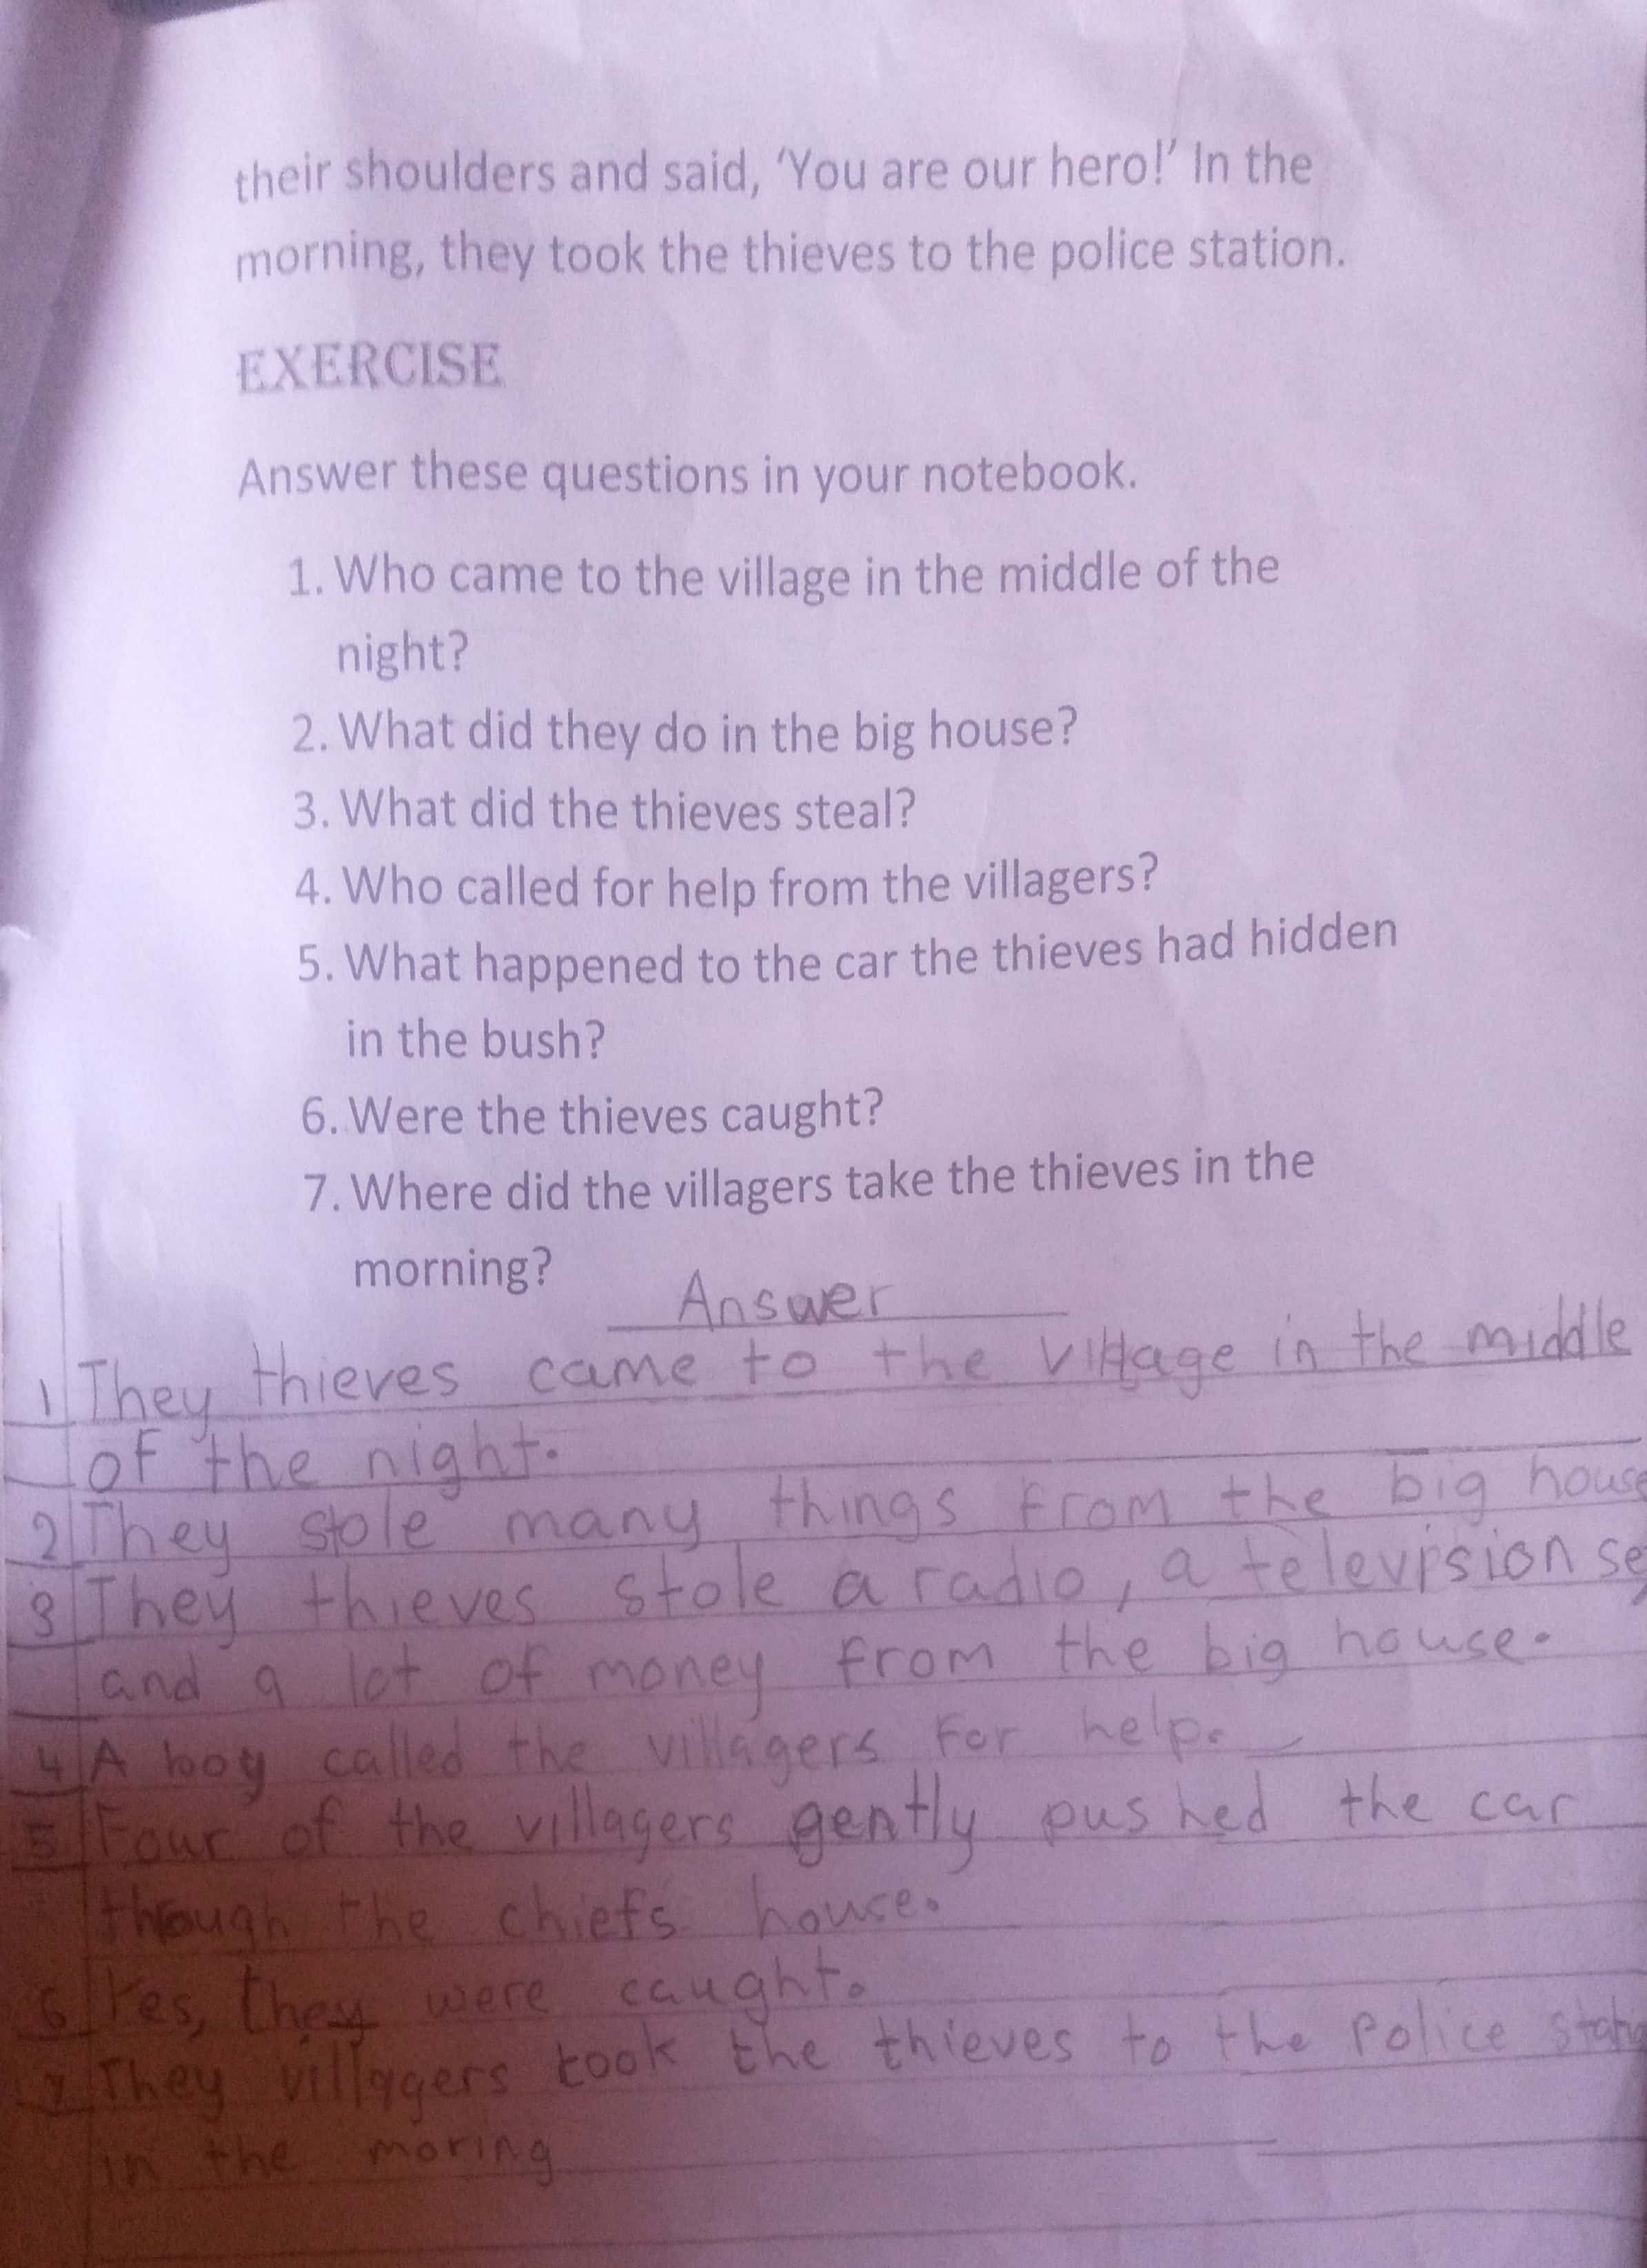 their shoulders and said, ‘You are our hero!’ In the
morning, they took the thieves to the police station.
EXERCISE
Answer these questions in your notebook.
1. Who came to the village in the middle of the
night?
2. What did they do in the big house?
3. What did the thieves steal?
4. Who called for help from the villagers?
5. What happened to the car the thieves had hidden
in the bush?
6. Were the thieves caught?
7. Where did the villagers take the thieves in the
morning?
Answer
1 They thieves came to the village in the middle
of the night.
2 They stole many things from the big house
3 They thieves stole a radio, a television se
and a lot of money from the big house.
4 A boy called the villagers For help.
5 Four of the villagers gently pushed the car
through the chiefs house.
6 Yes, they were caught.
7 They villagers took the thieves to the police
in the moring